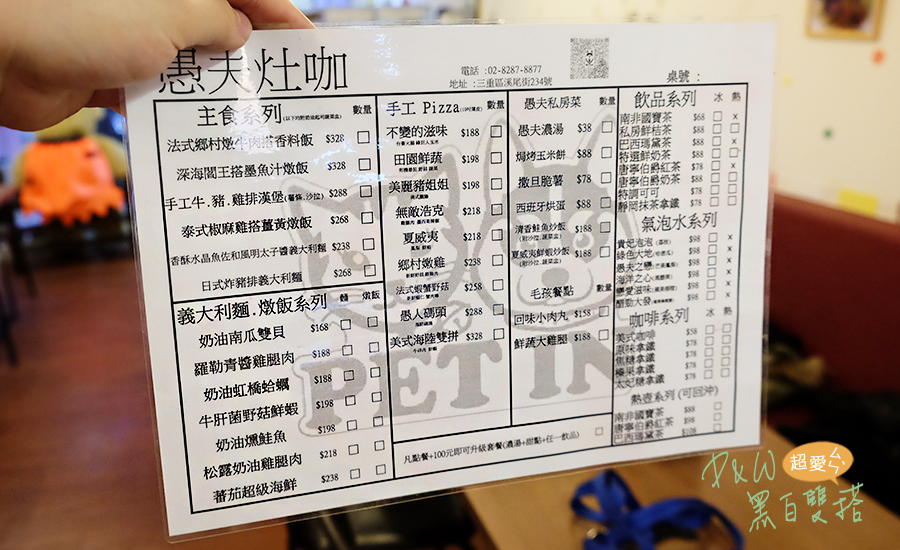 愚夫灶咖
電話 :02-8287-8877
地址 :三重區溪尾街234號
桌號 :
主食系列 數量
法式鄉村燉牛肉搭香料飯 $328
深海閻王搭墨魚汁燉飯 $328
手工牛.豬.雞排漢堡(薯條.沙拉) $288
泰式椒麻雞搭薑黃燉飯 $268
香酥水晶魚佐和風明太子醬義大利麵 $238
日式炸豬排義大利麵 $268
義大利麵.燉飯系列 麵 燉飯
奶油南瓜雙貝 $168
羅勒青醬雞腿肉 $188
奶油虹橋蛤蠣 $188
牛肝菌野菇鮮蝦 $198
奶油燻鮭魚 $198
松露奶油雞腿肉 $218
蕃茄超級海鮮 $238
手工 Pizza 數量
不變的滋味 $188
田園鮮蔬 $198
美麗豬姐姐 $198
無敵浩克 $218
夏威夷 $218
鄉村燉雞 $238
法式蝦蟹野菇 $258
愚人碼頭 $288
美式海陸雙拼 $328
愚夫私房菜 數量
愚夫濃湯 $38
焗烤玉米餅 $88
撒旦脆薯 $78
西班牙烘蛋 $88
清香鮭魚炒飯 $188
(附沙拉.蔬菜盒)
夏威夷鮮蝦炒飯 $188
(附沙拉.蔬菜盒)
毛孩餐點 數量
回味小肉丸 $158
鮮蔬大雞腿 $188
凡點餐+100元即可升級套餐(濃湯+甜點+任一飲品)
飲品系列 冰 熱
南非國寶茶 $68 x
私房鮮桔茶 $78
巴西瑪黛茶 $78 x
特選鮮奶茶 $78
唐寧伯爵紅茶 $78 x
唐寧伯爵奶茶 $78
特調可可 $78
靜岡抹茶拿鐵 $78
氣泡水系列
貴妃泡泡 $98 x
綠色大地 $98 x
愚夫之 $98 x
海洋之心 $98 x
戀愛滋味 $98 x
酷勁大發 $98 x
咖啡系列 冰 熱
美式咖啡 $58
原味拿鐵 $78
焦糖拿鐵 $78
榛果拿鐵 $78
太妃糖拿鐵 $78
熱壺系列 (可回沖)
南非國寶茶 $88
唐寧伯爵紅茶 $98
巴西瑪黛茶 $108
PET IN
P&W 超愛ㄣ
黑白雙搭